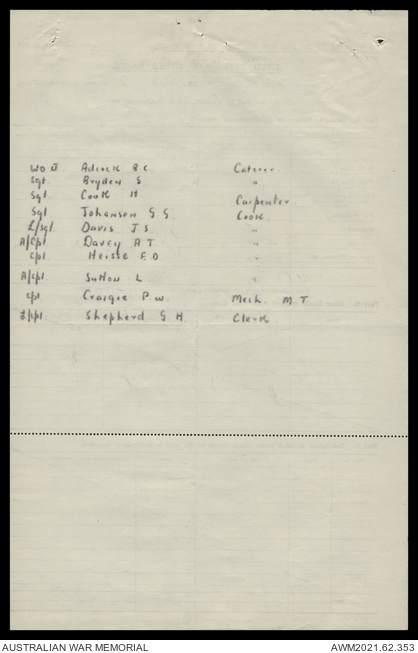 WO II Adcock B C Caterer
Sgt. Bryden S "
Sgt. Cook H Carpenter
Sgt Johanson G G. Cook
L/Sgt. Davis J S. "
A/Cpl Davey A T "
Cpl Heisse E D "
A/Cpl Sutton L "
Cpl Craigie P W. Mech. M T
L/Cpl Shepherd G H Clerk
AUSTRALIAN WAR MEMORIAL
AWM2021.62.353